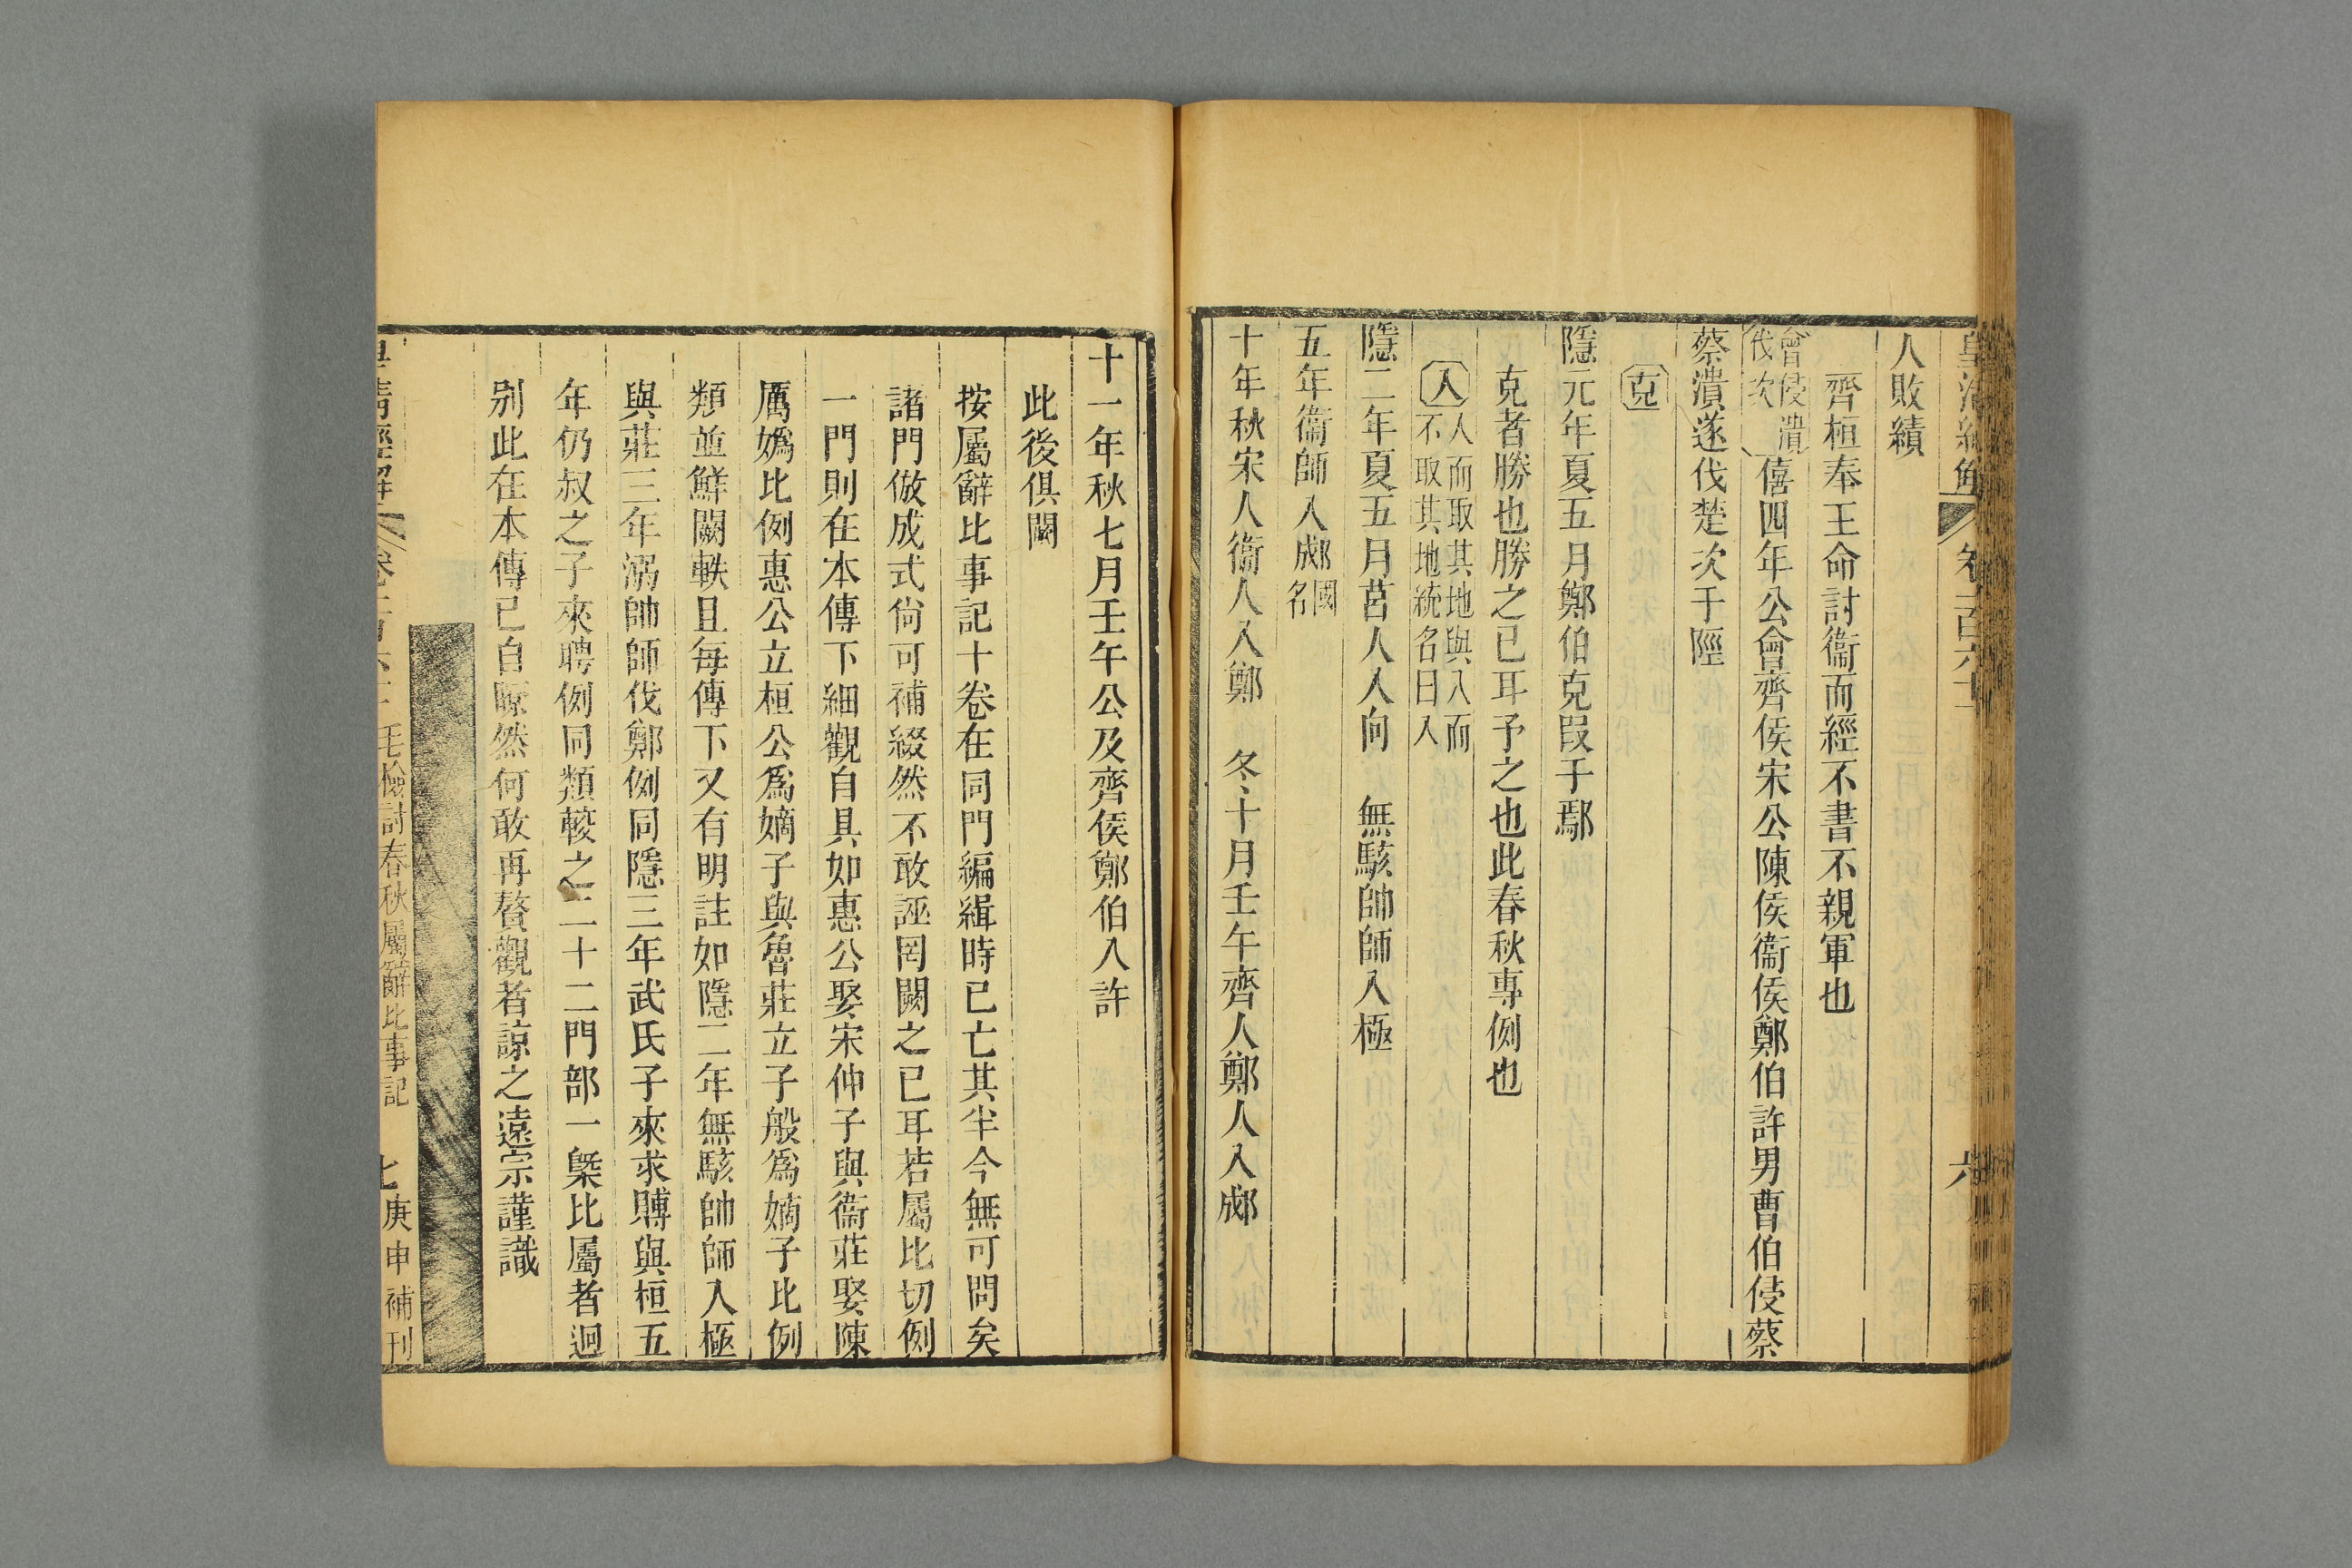 人敗績
齊桓奉王命討衞而經不書不親軍也
會侵潰
伐次
僖四年公會齊侯宋公陳侯衞侯鄭伯許男曹伯侵蔡
蔡潰遂伐楚次于陘
克
隱元年夏五月鄭伯克段于鄢
克者勝也勝之已耳予之也此春秋專例也
入
入而取其地與入而
不取其地統名曰入
隱二年夏五月莒人入向 無駭帥師入極
五年衞師入郕
國
名
十年秋宋人衞人入鄭 冬十月壬午齊人鄭人入郕
十一年秋七月壬午公及齊侯鄭伯入許
此後俱闕
按屬辭比事記十卷在同門編緝時已亡其半今無可問矣
諸門倣成式尙可補綴然不敢誣罔闕之已耳若屬比切例
一門則在本傳下細觀自具如惠公娶宋仲子與衞莊娶陳
厲嬀比例惠公立桓公爲嫡子與魯莊立子般爲嫡子比例
類並鮮闕軼且每傳下又有明註如隱二年無駭帥師入極
與莊三年溺帥師伐鄭例同隱三年武氏子來求賻與桓五
年仍叔之子來聘例同類較之二十二門部一㮣比屬者迥
别此在本傳已自瞭然何敢再贅觀者諒之遠宗謹識
皇淸經解
毛檢討春秋屬辭比事記
七
庚申補刊